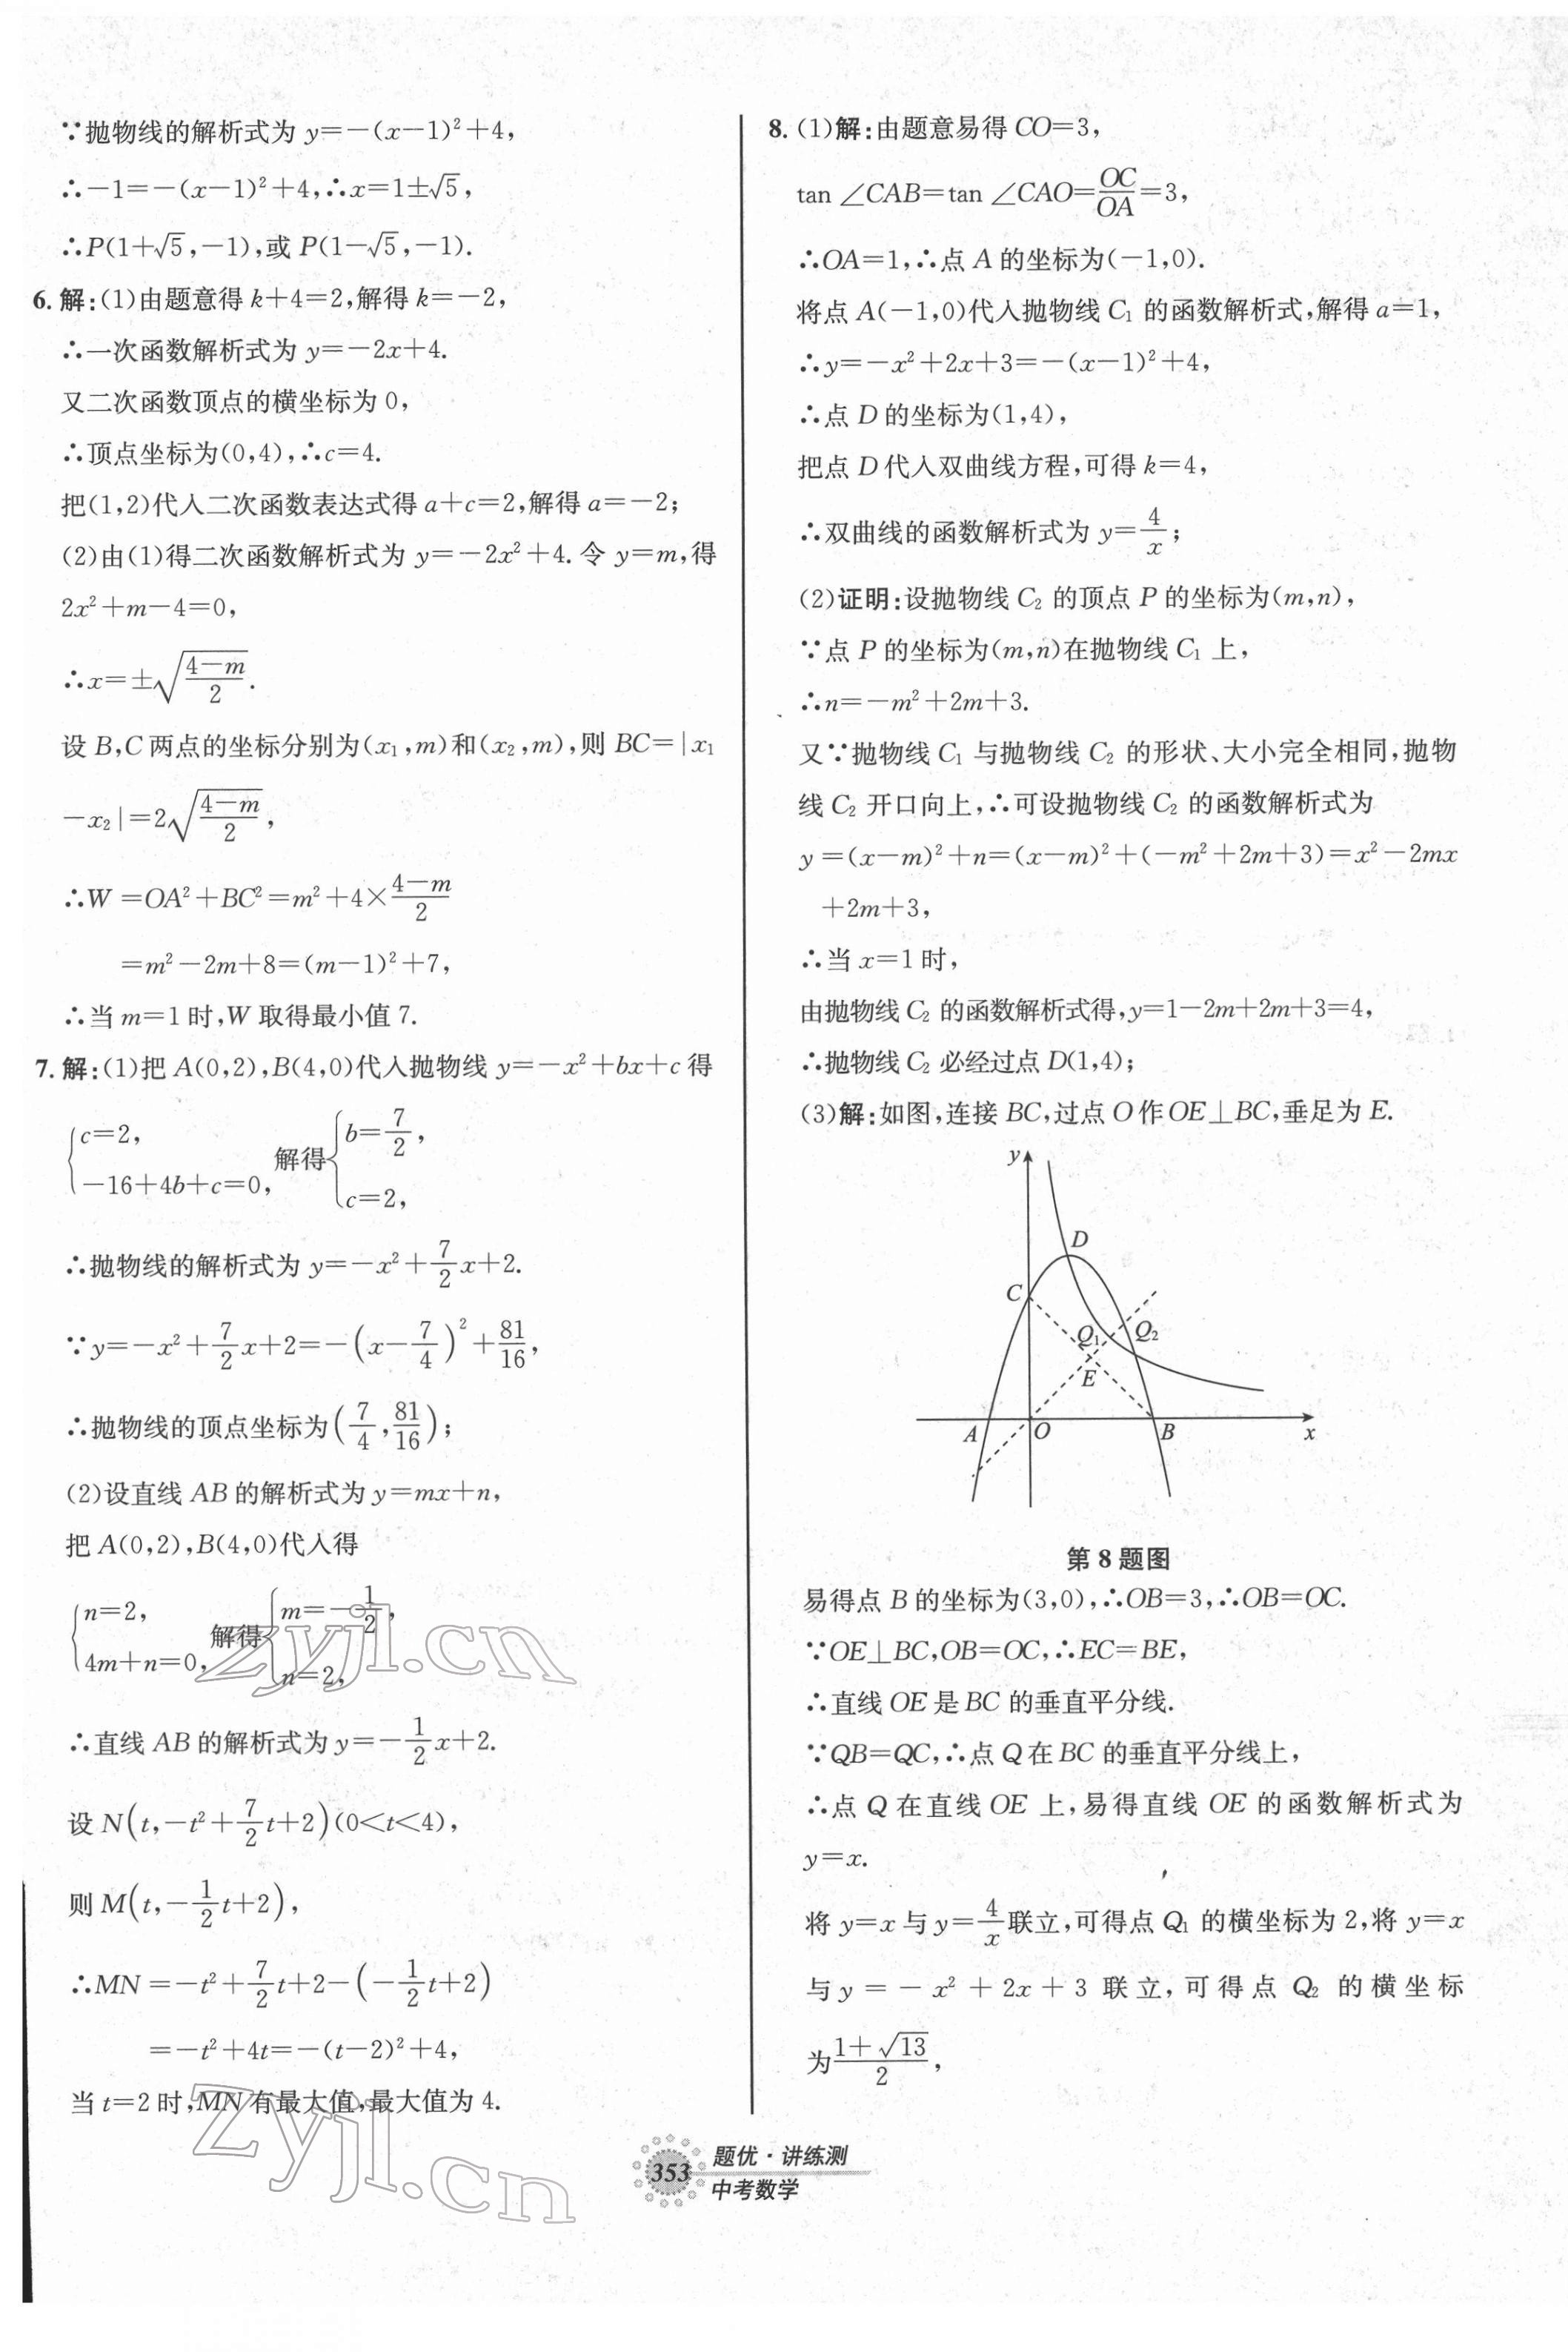 ∵抛物线的解析式为 y=-(x-1)²+4,
∴-1=-(x-1)²+4,∴x=1±√5,
∴P(1+√5,-1),或 P(1-√5,-1).
6. 解:(1)由题意得 k+4=2,解得 k=-2,
∴一次函数解析式为 y=-2x+4.
又二次函数顶点的横坐标为 0,
∴顶点坐标为(0,4),∴c=4.
把(1,2)代入二次函数表达式得 a+c=2,解得 a=-2;
(2)由(1)得二次函数解析式为 y=-2x²+4. 令 y=m,得
2x²+m-4=0,
∴x=±√((4-m)/2).
设 B,C 两点的坐标分别为(x₁,m)和(x₂,m),则 BC=|x₁
-x₂|=2√((4-m)/2),
∴W =OA²+BC²=m²+4×(4-m)/2
=m²-2m+8=(m-1)²+7,
∴当 m=1 时,W 取得最小值 7.
7. 解:(1)把 A(0,2),B(4,0)代入抛物线 y=-x²+bx+c 得
{c=2, -16+4b+c=0, 解得 {b=7/2, c=2,
∴抛物线的解析式为 y=-x²+7/2x+2.
∵y=-x²+7/2x+2=-(x-7/4)²+81/16,
∴抛物线的顶点坐标为(7/4,81/16);
(2)设直线 AB 的解析式为 y=mx+n,
把 A(0,2),B(4,0)代入得
{n=2, 4m+n=0, 解得 {m=-1/2, n=2,
∴直线 AB 的解析式为 y=-1/2x+2.
设 N(t,-t²+7/2t+2)(0<t<4),
则 M(t,-1/2t+2),
∴MN =-t²+7/2t+2-(-1/2t+2)
=-t²+4t=-(t-2)²+4,
当 t=2 时,MN 有最大值,最大值为 4.
8. (1)解:由题意易得 CO=3,
tan ∠CAB=tan ∠CAO=OC/OA=3,
∴OA=1,∴点 A 的坐标为(-1,0).
将点 A(-1,0)代入抛物线 C₁ 的函数解析式,解得 a=1,
∴y=-x²+2x+3=-(x-1)²+4,
∴点 D 的坐标为(1,4),
把点 D 代入双曲线方程,可得 k=4,
∴双曲线的函数解析式为 y=4/x;
(2)证明:设抛物线 C₂ 的顶点 P 的坐标为(m,n),
∵点 P 的坐标为(m,n)在抛物线 C₁ 上,
∴n=-m²+2m+3.
又∵抛物线 C₁ 与抛物线 C₂ 的形状、大小完全相同,抛物
线 C₂ 开口向上,∴可设抛物线 C₂ 的函数解析式为
y =(x-m)²+n=(x-m)²+(-m²+2m+3)=x²-2mx
+2m+3,
∴当 x=1 时,
由抛物线 C₂ 的函数解析式得,y=1-2m+2m+3=4,
∴抛物线 C₂ 必经过点 D(1,4);
(3)解:如图,连接 BC,过点 O 作 OE⊥BC,垂足为 E.
y
D
C
Q₁
Q₂
E
A
O
B
x
第 8 题图
易得点 B 的坐标为(3,0),∴OB=3,∴OB=OC.
∵OE⊥BC,OB=OC,∴EC=BE,
∴直线 OE 是 BC 的垂直平分线.
∵QB=QC,∴点 Q 在 BC 的垂直平分线上,
∴点 Q 在直线 OE 上,易得直线 OE 的函数解析式为
y=x.
将 y=x 与 y=4/x 联立,可得点 Q₁ 的横坐标为 2,将 y=x
与 y = - x² + 2x + 3 联立,可得点 Q₂ 的横坐标
为(1+√13)/2,
zyjl.cn
zyjl.cn
353
题优·讲练测
中考数学